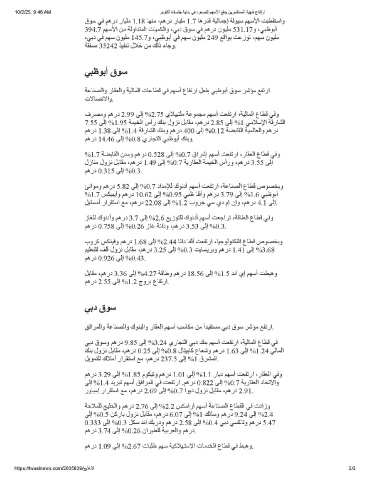 10/2/25, 9:46 AM
ارتفاع شهية المستثمرين يدفع الأسهم للصعود في بداية جلسات أكتوبر
واستقطبت الأسهم سيولة إجمالية قدرها 1.7 مليار درهم، منها 1.18 مليار درهم في سوق
أبوظبي، و531.17 مليون درهم في سوق دبي، والكميات المتداولة من الأسهم 394.7
مليون سهم، توزعت بواقع 249 مليون سهم في أبوظبي، و145.7 مليون سهم في دبي،
وجاء ذلك من خلال تنفيذ 34235 صفقة.
سوق أبوظبي
ارتفع مؤشر سوق أبوظبي بفعل ارتفاع أسهم في قطاعات المالية والعقار والصناعة
والاتصالات.
وفي قطاع المالية، ارتفعت أسهم مجموعة ملتيبلاي 2.75% إلى 2.99 درهم ومصرف
الشارقة الإسلامي 1% إلى 2.85 درهم، مقابل نزول بنك رأس الخيمة 1.95% إلى 7.55
درهم والعالمية القابضة 0.12% إلى 400 درهم وبنك الشارقة 1.4% إلى 1.38 درهم
وبنك أبوظبي التجاري 0.8% إلى 14.46 درهم.
وفي قطاع العقار، ارتفعت أسهم إشراق 0.7% إلى 0.528 درهم ومدن القابضة 1.7%
إلى 3.55 درهم، ورأس الخيمة العقارية 0.7% إلى 1.49 درهم، مقابل نزول منازل
0.3% إلى 0.315 درهم.
وبخصوص قطاع الصناعة، ارتفعت أسهم أدنوك للإمداد 0.7% إلى 5.82 درهم وموانئ
أبوظبي 1.6% إلى 3.79 درهم وألفا ظبي 0.95% إلى 10.62 درهم وأبيكس 1.7%
إلى 4.1 درهم، وإن إم دي سي جروب 1.2% إلى 22.08 درهم، مع استقرار أمستيل.
وفي قطاع الطاقة، تراجعت أسهم أدنوك للتوزيع 2.6% إلى 3.7 درهم وأدنوك للغاز
0.3% إلى 3.53 درهم، ودانة غاز 0.26% إلى 0.758 درهم.
وبخصوص قطاع التكنولوجيا، ارتفعت ألف داتا 2.44% إلى 1.68 درهم وفينكس كروب
3.68% إلى 1.41 درهم وبريسايت 0.3% إلى 3.25 درهم، مقابل نزول ألف للتعليم
0.43% إلى 0.926 درهم.
وهبطت أسهم إي اند 1.5% إلى 18.56 درهم وطاقة 4.27% إلى 3.36 درهم، مقابل
ارتفاع بروج 1.2% إلى 2.55 درهم.
سوق دبي
ارتفع مؤشر سوق دبي مستفيداً من مكاسب أسهم العقار والبنوك والصناعة والمرافق.
في قطاع المالية، ارتفعت أسهم بنك دبي التجاري 3.24% إلى 9.85 درهم وسوق دبي
المالي 1.24% إلى 1.63 درهم وشعاع كابيتال 0.8% إلى 0.25 درهم، مقابل نزول بنك
المشرق 1% إلى 237.5 درهم، مع استقرار أملاك للتمويل.
وفي العقار، ارتفعت أسهم ديار 1.1% إلى 1.01 درهم وتيكوم 1.85% إلى 3.29 درهم
والاتحاد العقارية 0.7% إلى 0.822 درهم. ارتفعت في المرافق أسهم تبريد 1.4% إلى
2.91 درهم، مقابل نزول ديوا 0.7% إلى 2.69 درهم، مع استقرار إمباور.
وزادت في القطاع الصناعة أسهم أرامكس 2.2% إلى 2.76 درهم والخليج للملاحة
2.4% إلى 9.24 درهم وسالك 1% إلى 6.07 درهم، مقابل نزول باركن 0.5% إلى
5.47 درهم وتاكسي دبي 0.4% إلى 2.58 درهم ودريك اند سكل 0.3% إلى 0.333
درهم والعربية للطيران 0.26% إلى 3.74 درهم.
وهبط في قطاع الخدمات الاستهلاكية سهم طلبات 2.67% إلى 1.09 درهم.
2/3